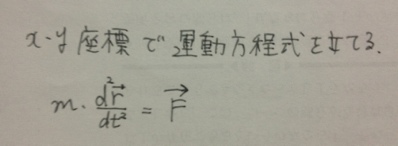 x-y 座標で運動方程式を立てる.
m・d²r⃗/dt² = F⃗